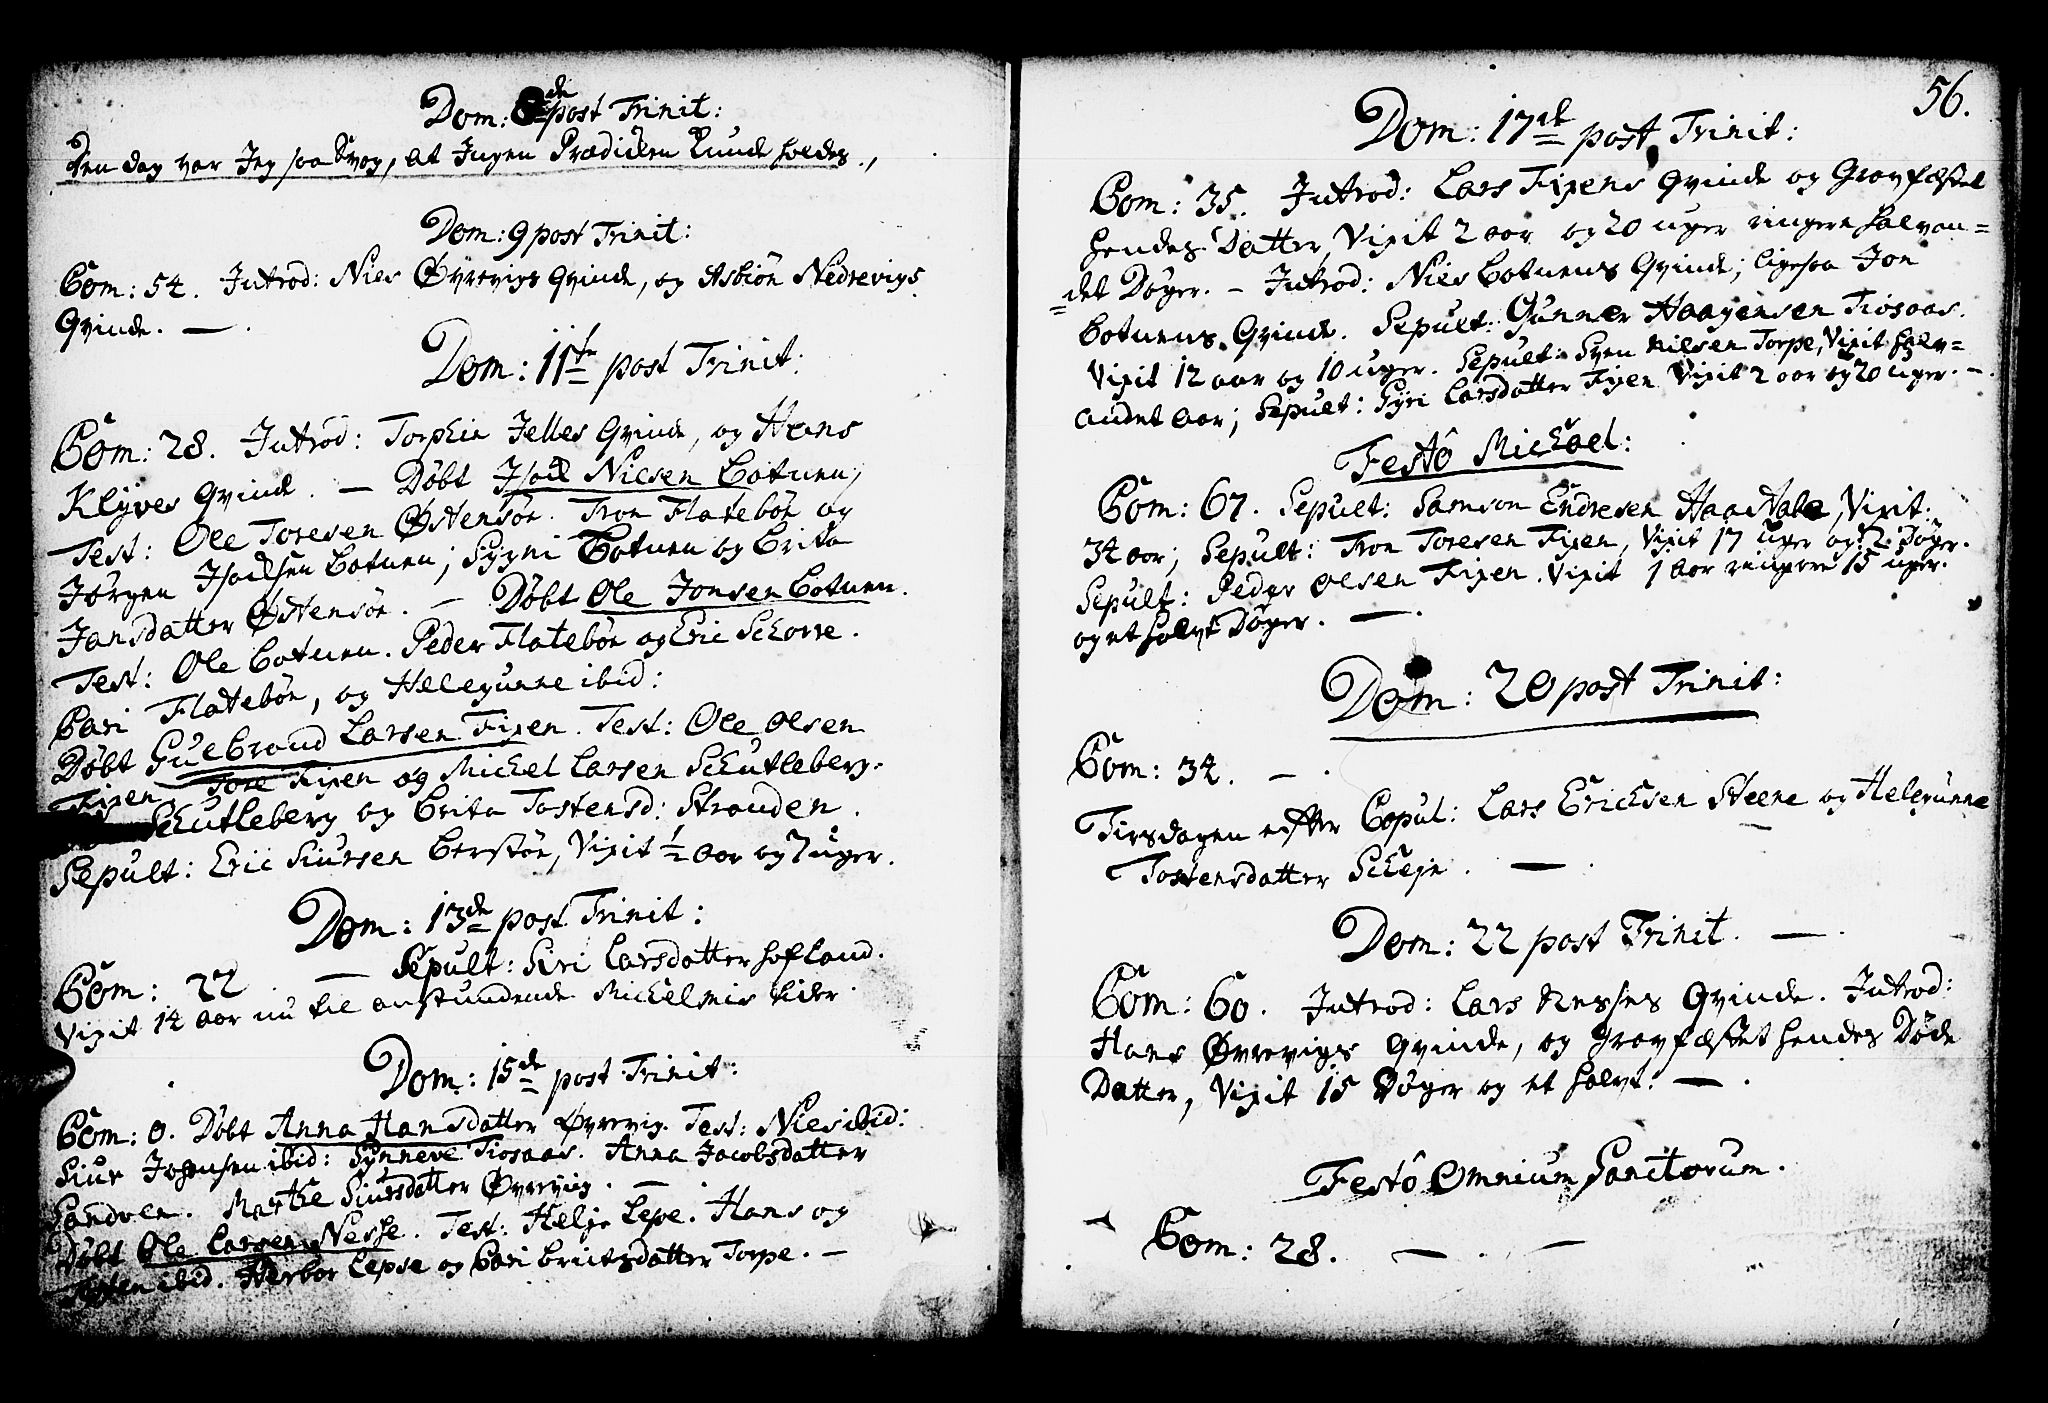 Dom: 8de post Trinit:
Den dag var Jeg saa Svag, at Ingen Prædicken kunde holdes.,
Dom: 9 post Trinit:
Com: 54. Introd: Niels Øvrevigs Qvinde, og Asbiön Nedrevigs
Qvinde. —.
Dom: 11te post Trinit:
Com: 28. Introd: Torphin Jelles Qvinde, og Hans
Klyves Qvinde. — Døbt Isach Nielsen Botnen,
Test: Ole Toresen Østensöe. Tron Flatebøe og
Jørgen Isachsen Botnen; Sygni Botnen og Brita
Jansdatter Østensöe. — Døbt Ole Jonsen Botnen.
Test: Ole Botnen. Peder Flatebøe og Eric Schorre.
Bari Flatebøe, og Helegunne ibid:
Døbt Gulbrand Larsen Fixen. Test: Ole Olsen
Fixen, Tore Fixen og Michel Larsen Schutleberg.
Schutleberg og Brita Tostensd: Stranden.
Sepult: Eric Siursen Berstöe, Vixit 1/2 aar og 7 uger.
Dom: 13de post Trinit:
Com: 22. — Sepult: Siri Larsdatter Hofland.
Vixit 14 aar nu til anstundende Michelmis tider.
Dom: 15de post Trinit:
Com: 0. Døbt Anna Hansdatter Øvrevig. Test: Niels ibid:
Siur Johansen ibid: Synneve Tiosaas. Anna Jacobsdatter
Sandven. Marthe Siursdatter Øvrevig. —.
Døbt Ole Larsen Nesse. Test: Helje Lepse. Hans og
Tosten ibid. Herbor Lepse og Bari Briitsdatter Torpe. —
56.
Dom: 17de post Trinit:
Com: 35. Introd: Lars Fixens Qvinde og Gravfæstet
hendes Datter, Vixit 2 aar og 20 uger ringere halvan=
=det Døger. — Introd: Niels Botnens Qvinde; ligesaa Jon
Botnens Qvinde. Sepult: Gunner Haagensen Tiosaas.
Vixit 12 aar og 10 uger. Sepult: Sven Nilsen Torpe, Vixit halv=
andet aar; Sepult: Gyri Larsdatter Fixen Vixit 2 aar og 20 uger. —.
Festô Michael:
Com: 67. Sepult: Samson Endresen Haastabe, Vixit.
34 aar; Sepult: Tron Toresen Fixen, Vixit 17 uger og 2 Døger.
Sepult: Peder Olsen Fixen. Vixit 1 aar ringere 15 uger.
og et halvt Døger. —.
Dom: 20 post Trinit:
Com: 34. —.
Tirsdagen effter Copul: Lars Ericksen Steene og Helegunne
Tostensdatter Scheje. —.
Dom: 22 post Trinit. —.
Com: 60. Introd: Lars Nesses Qvinde. Introd:
Hans Øvrevigs Qvinde, og Gravfæstet hendes Døde
Datter, Vixit 15 Døger og et halvt. —.
Festô Omnium Sanctorum.
Com: 28. —. —